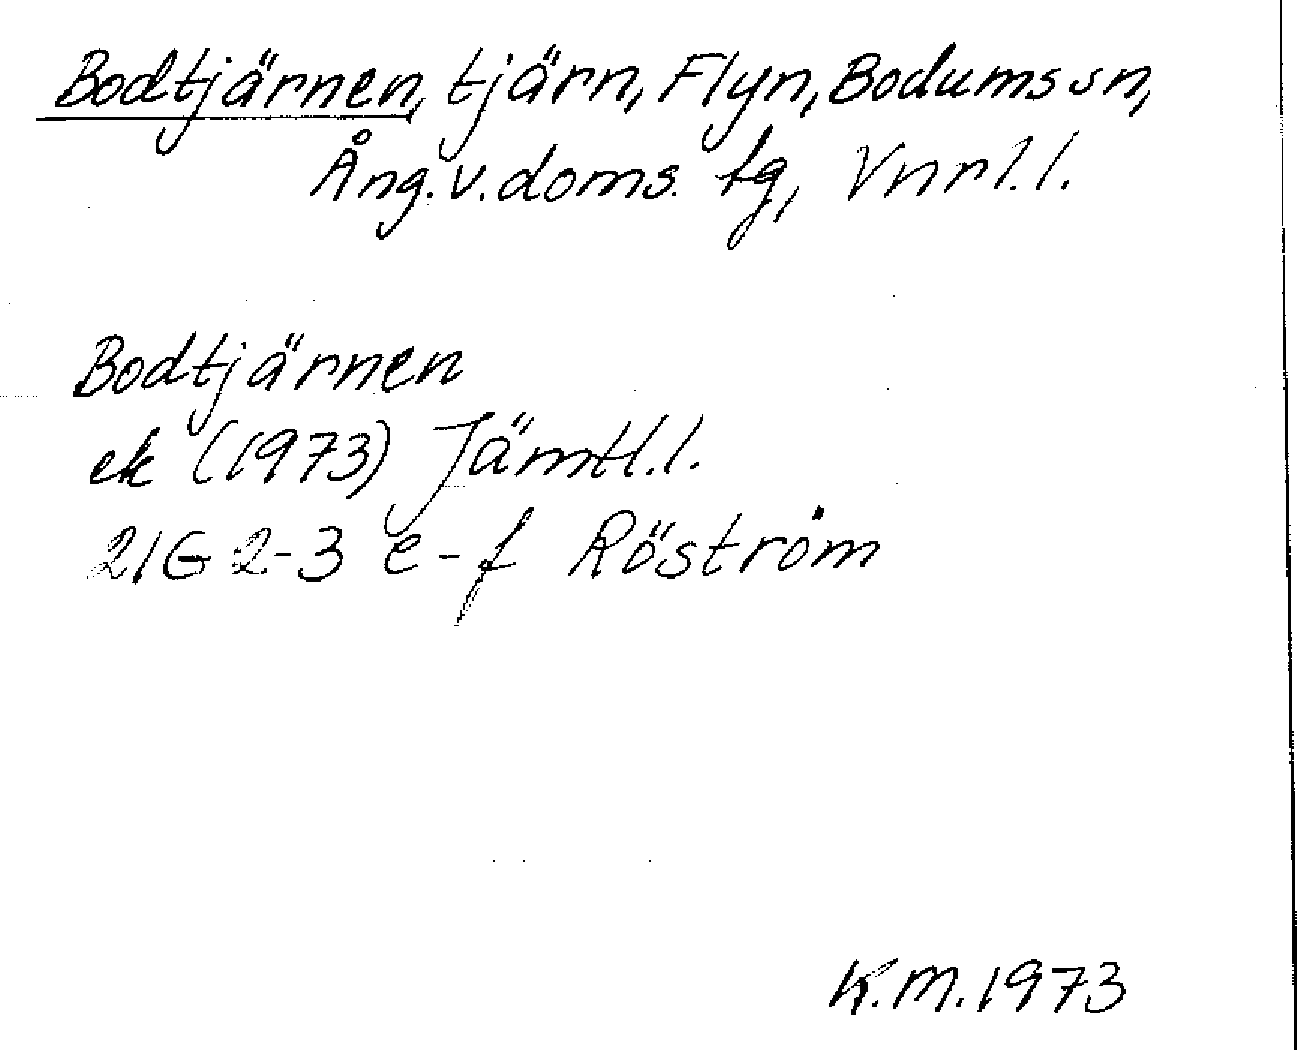 Bodtjärnen, tjärn, Flyn, Bodums sn,
Ång. v. doms. tg, Vnrl. l.
Bodtjärnen
ek (1973) Jämtl. l.
21G 2-3 e-f Röström
K.M. 1973